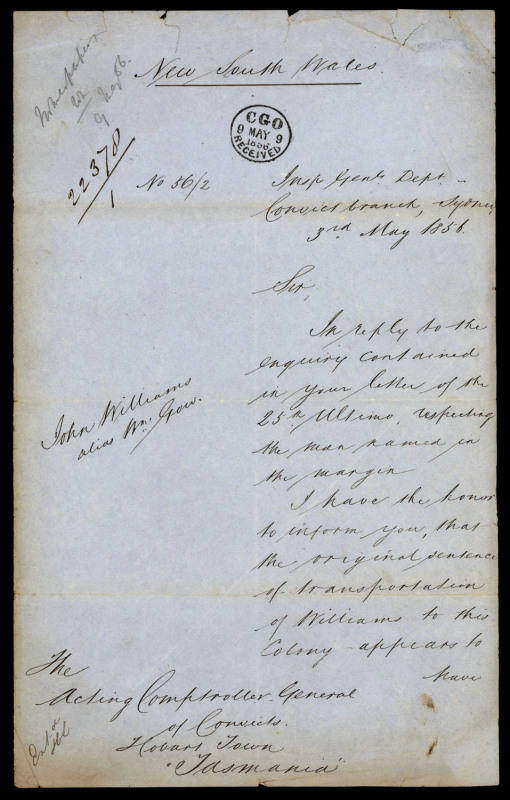 New South Wales
CGO
9 MAY 9
1856
RECEIVED
22378
1
No 56/2
Insp Genls Dept
Convict branch, Sydney
3rd May 1856.
Sir,
In reply to the
enquiry contained
in your letter of the
25th Ultimo, respecting
the man named in
the margin
John Williams
alias Wm Gow.
I have the honor
to inform you, that
the original sentence
of transportation
of Williams to this
Colony appears to
have
The
Acting Comptroller General
of Convicts.
Hobart Town
"Tasmania"